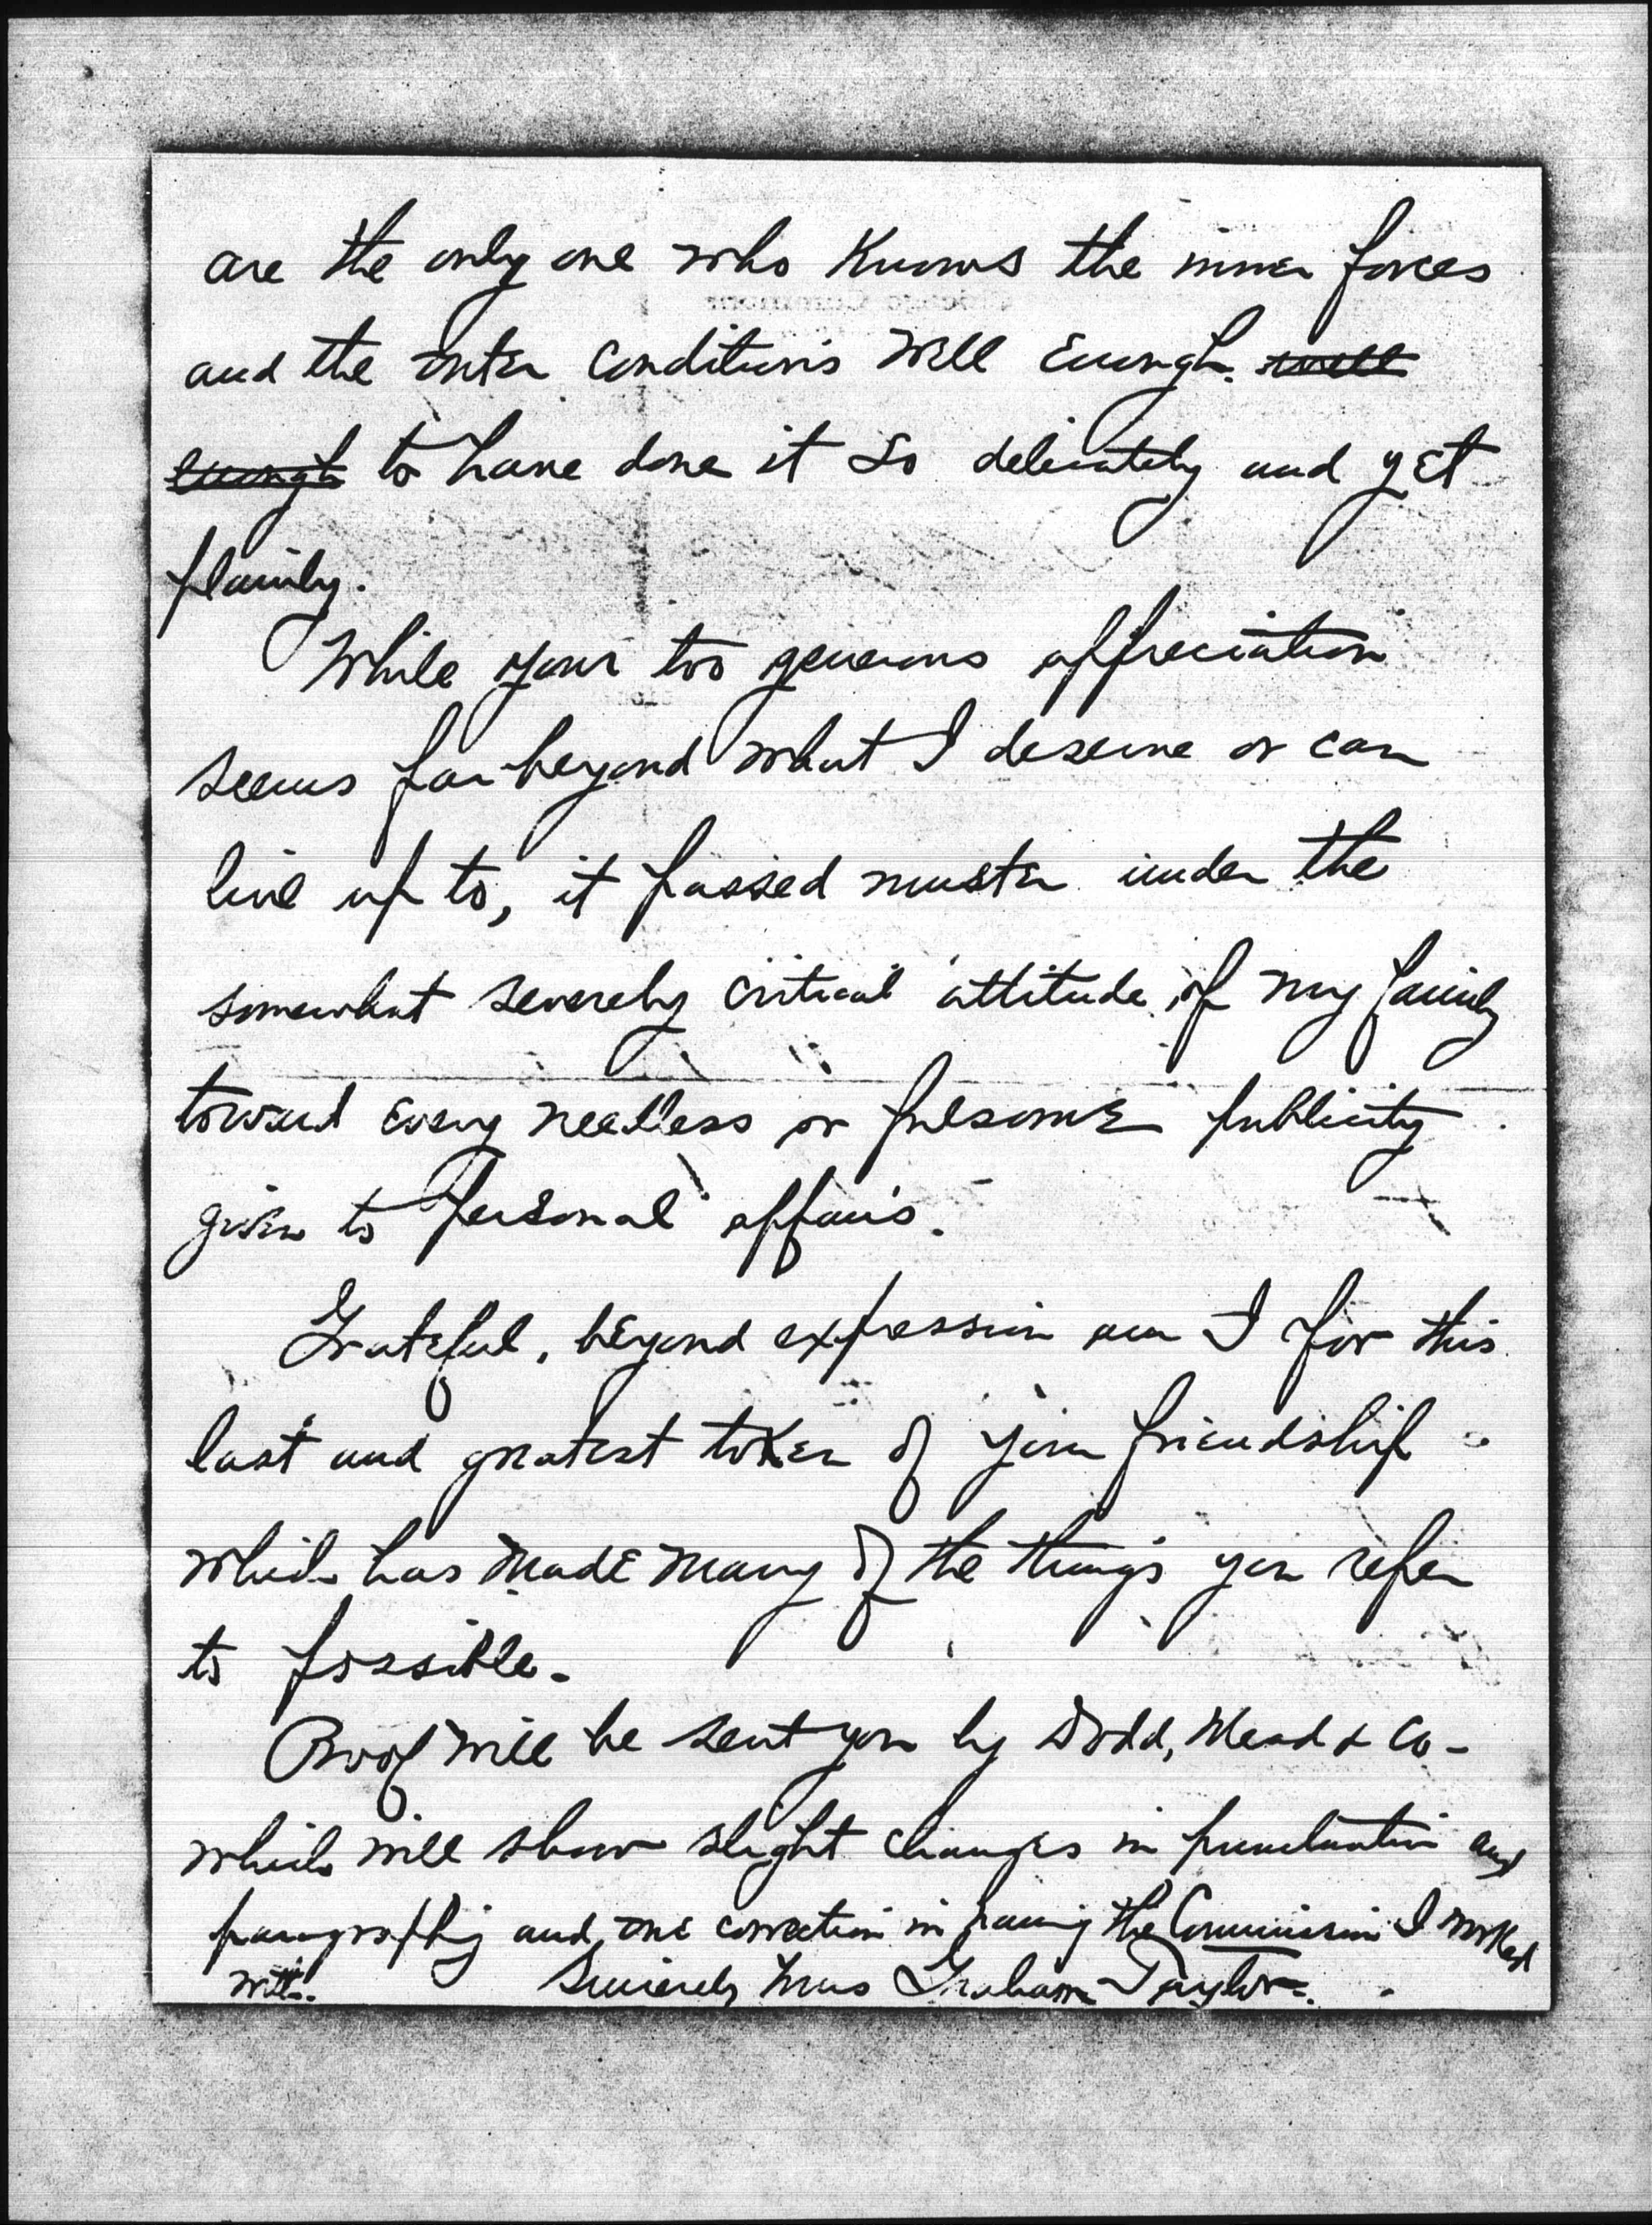 are the only one who knows the inner forces
and the outer conditions well enough. well
enough to have done it so delicately and yet
plainly.
While your too generous appreciation
seems far beyond what I deserve or can
live up to, it passed muster under the
somewhat severely critical attitude of my family
toward every needless or fulsome publicity
given to personal affairs.
Grateful, beyond expression am I for this
last and greatest token of your friendship
which has made many of the things you refer
to possible.
Proof will be sent you by Dodd, Mead & Co-
which will show slight changes in punctuation and
paragraphing and one correction in naming the Commission I worked
with.
Sincerely yours Graham Taylor.